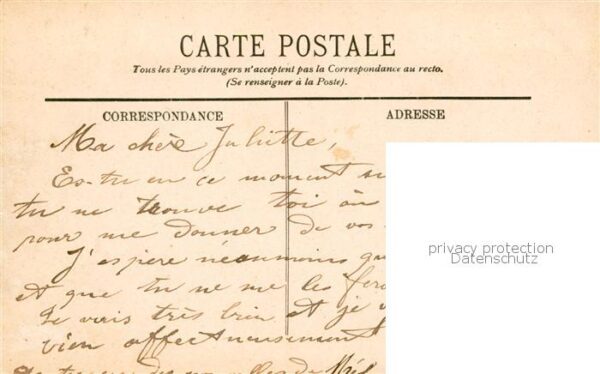 CARTE POSTALE
Tous les Pays étrangers n'acceptent pas la Correspondance au recto.
(Se renseigner à la Poste).
CORRESPONDANCE
ADRESSE
Ma chère Juliette,
Es-tu en ce moment
tu ne trouve toi
pour me donner de vos
J'espère néanmoins que
et que tu ne me les fera
Je vais très bien et je
bien affectueusement
privacy protection
Datenschutz